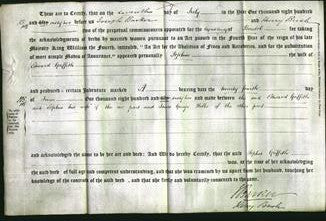 on the seventh day of July in the Year One thousand Eight
Hundred and before us Joseph Parker and Henry Bush
Two of the perpetual commissioners appointed for the of for taking
the acknowledgments of deeds by married women, pursuant to an Act passed in the Fourth Year of the reign of his late
Majesty King William the Fourth, intituled "An Act for the Abolition of Fines and Recoveries, and for the substitution
of more Simple Modes of Assurance," appeared personally Sophia the wife of
Edward Griffith
and produced a certain Indenture marked A bearing date the twenty fourth day
of June One thousand Eight hundred and and made between the said Edward Griffith
and Sophia his wife of the one part and James George of the other part
and acknowledged the same to be her act and deed: And We do hereby Certify, that the said Sophia Griffith
was, at the time of her acknowledging
the said deed of full age and competent understanding, and that she was examined by us apart from her husband, touching
her knowledge of the contents of the said deed, and that she freely and voluntarily consented to the same.
Parker
Henry Bush